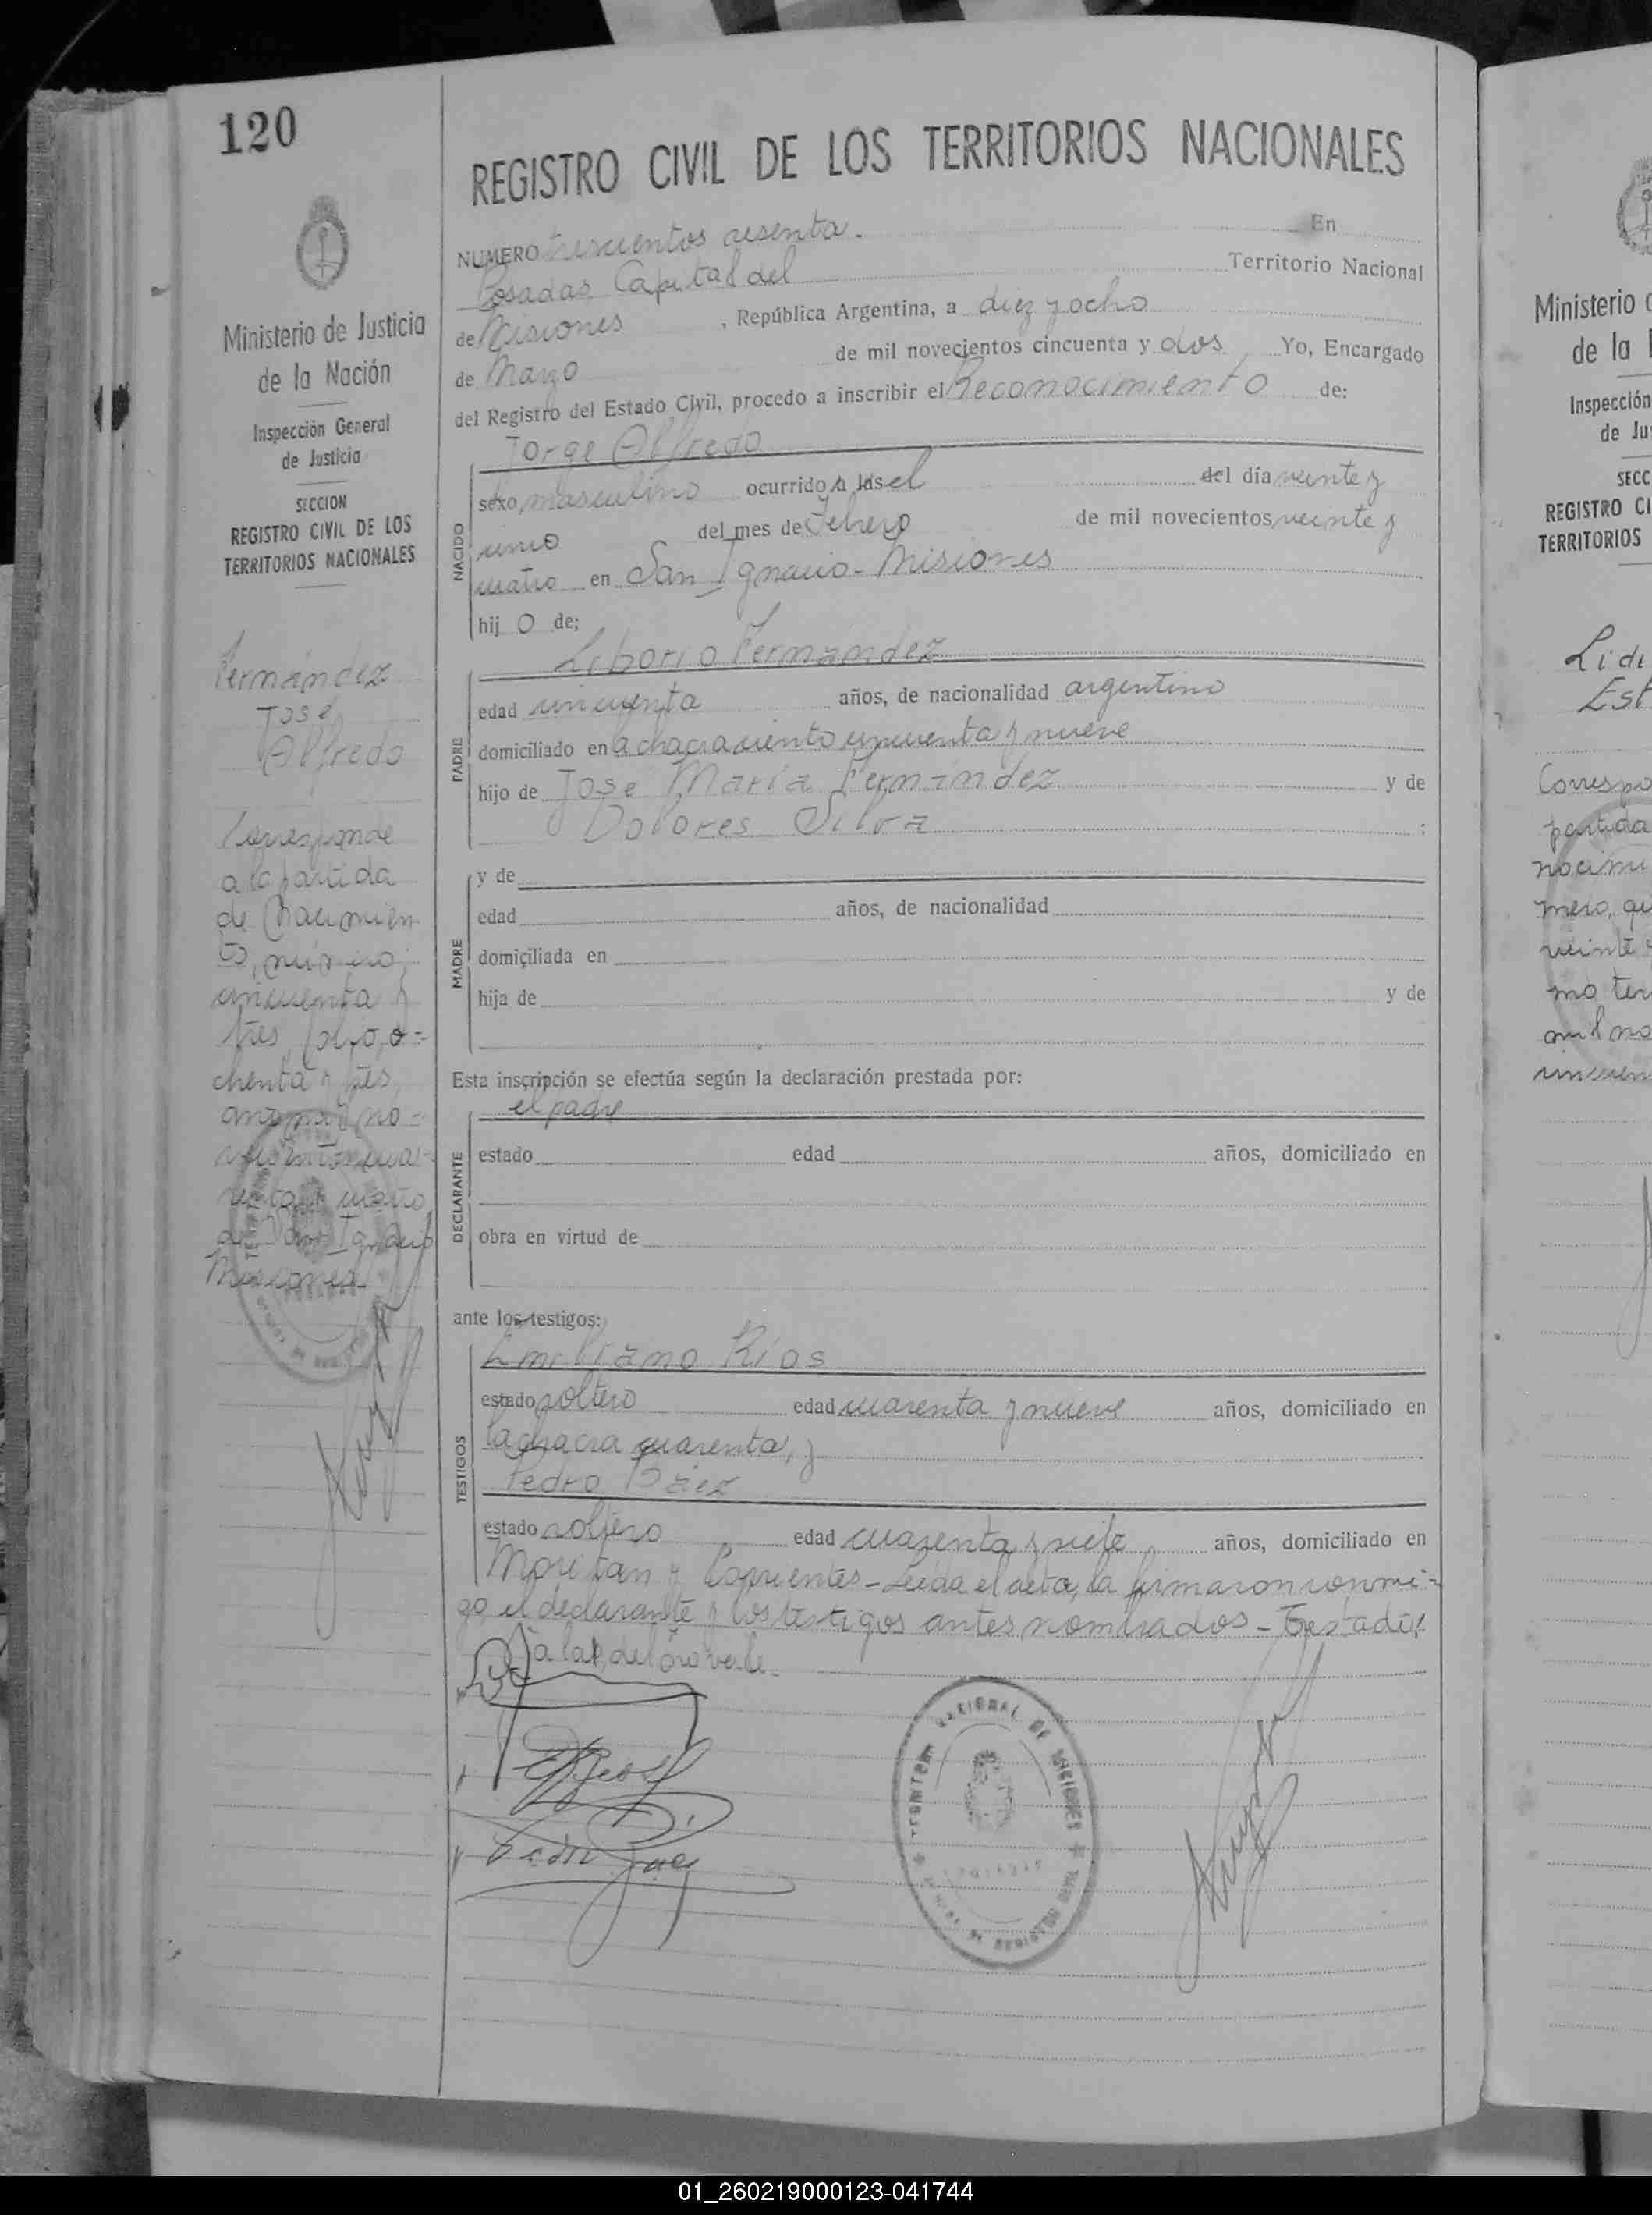 120
REGISTRO CIVIL DE LOS TERRITORIOS NACIONALES
Ministerio de Justicia
de la Nación
Inspección General
de Justicia
SECCION
REGISTRO CIVIL DE LOS
TERRITORIOS NACIONALES
Fernández
José
Alfredo
Corresponde
a la partida
de Nacimien
to, número
cincuenta y
tres, folio, o-
chenta y tres,
año mil no-
vecientos cua-
renta y cuatro
de San Ignacio
Misiones.
NUMERO trescientos sesenta. En
Posadas, Capital del Territorio Nacional
de Misiones, República Argentina, a diez y ocho
de Marzo de mil novecientos cincuenta y dos Yo, Encargado
del Registro del Estado Civil, procedo a inscribir el Reconocimiento de:
Jorge Alfredo
NACIDO
sexo masculino ocurrido a las el del día veinte y
uno del mes de Febrero de mil novecientos veinte y
cuatro en San Ignacio - Misiones
hij o de:
PADRE
Liborio Fernández
edad cincuenta años, de nacionalidad argentino
domiciliado en la chacra ciento cincuenta y nueve
hijo de José María Fernández y de
Dolores Silva ;
MADRE
y de
edad años, de nacionalidad
domiciliada en
hija de y de
Esta inscripción se efectúa según la declaración prestada por:
DECLARANTE
el padre
estado edad años, domiciliado en
obra en virtud de
ante los testigos:
TESTIGOS
Emiliano Ríos
estado soltero edad cuarenta y nueve años, domiciliado en
la chacra cuarenta, y
Pedro Báez
estado soltero edad cuarenta y siete años, domiciliado en
y Corrientes - Leída el acta, la firmaron conmi-
go el declarante y los testigos antes nombrados -
TERRITORIO NACIONAL DE MISIONES
Ministerio
de la
Inspección
de Ju
SECC
REGISTRO CI
TERRITORIOS
Lidi
Est
Correspo
partida
nocimi
mero, qu
veinte
mo ter
mil no
cincuen
01_260219000123-041744